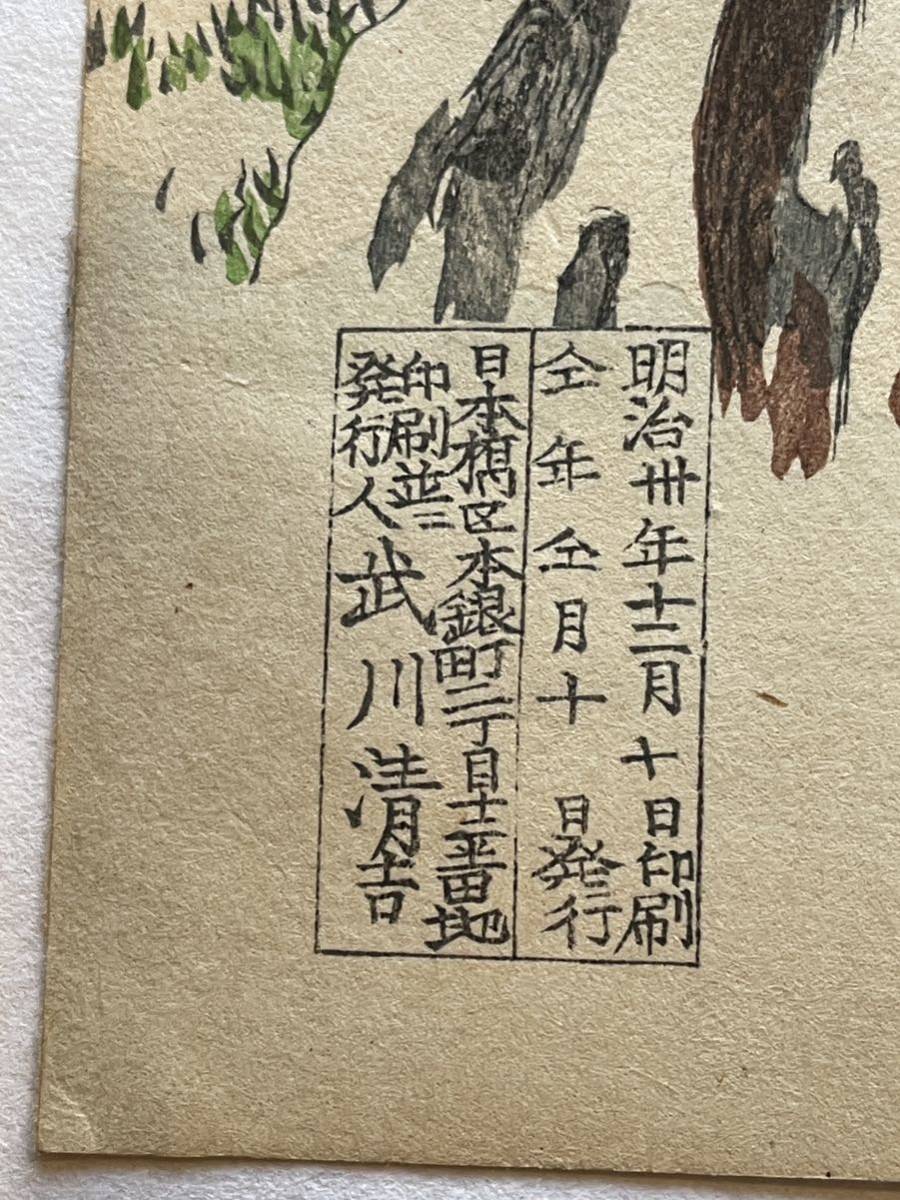 明治卅年十二月十日印刷
仝年仝月十日発行
日本橋区本銀町二丁目十二番地
印刷並ニ
発行人
武川清吉